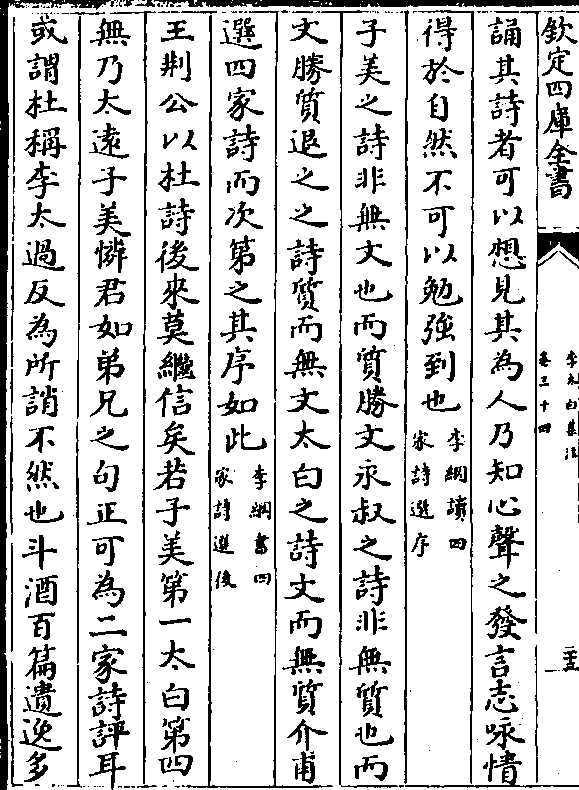 欽定四庫全書
李太白集注
卷三十四
二十五
誦其詩者可以想見其為人乃知心聲之發言志咏情
得於自然不可以勉強到也
李綱讀四
家詩選序
子美之詩非無文也而質勝文永叔之詩非無質也而
文勝質退之之詩質而無文太白之詩文而無質介甫
選四家詩而次第之其序如此
李綱書四
家詩選後
王荆公以杜詩後來莫繼信矣若子美第一太白第四
無乃太遠子美憐君如弟兄之句正可為二家詩評耳
或謂杜稱李太過反為所誚不然也斗酒百篇遺逸多